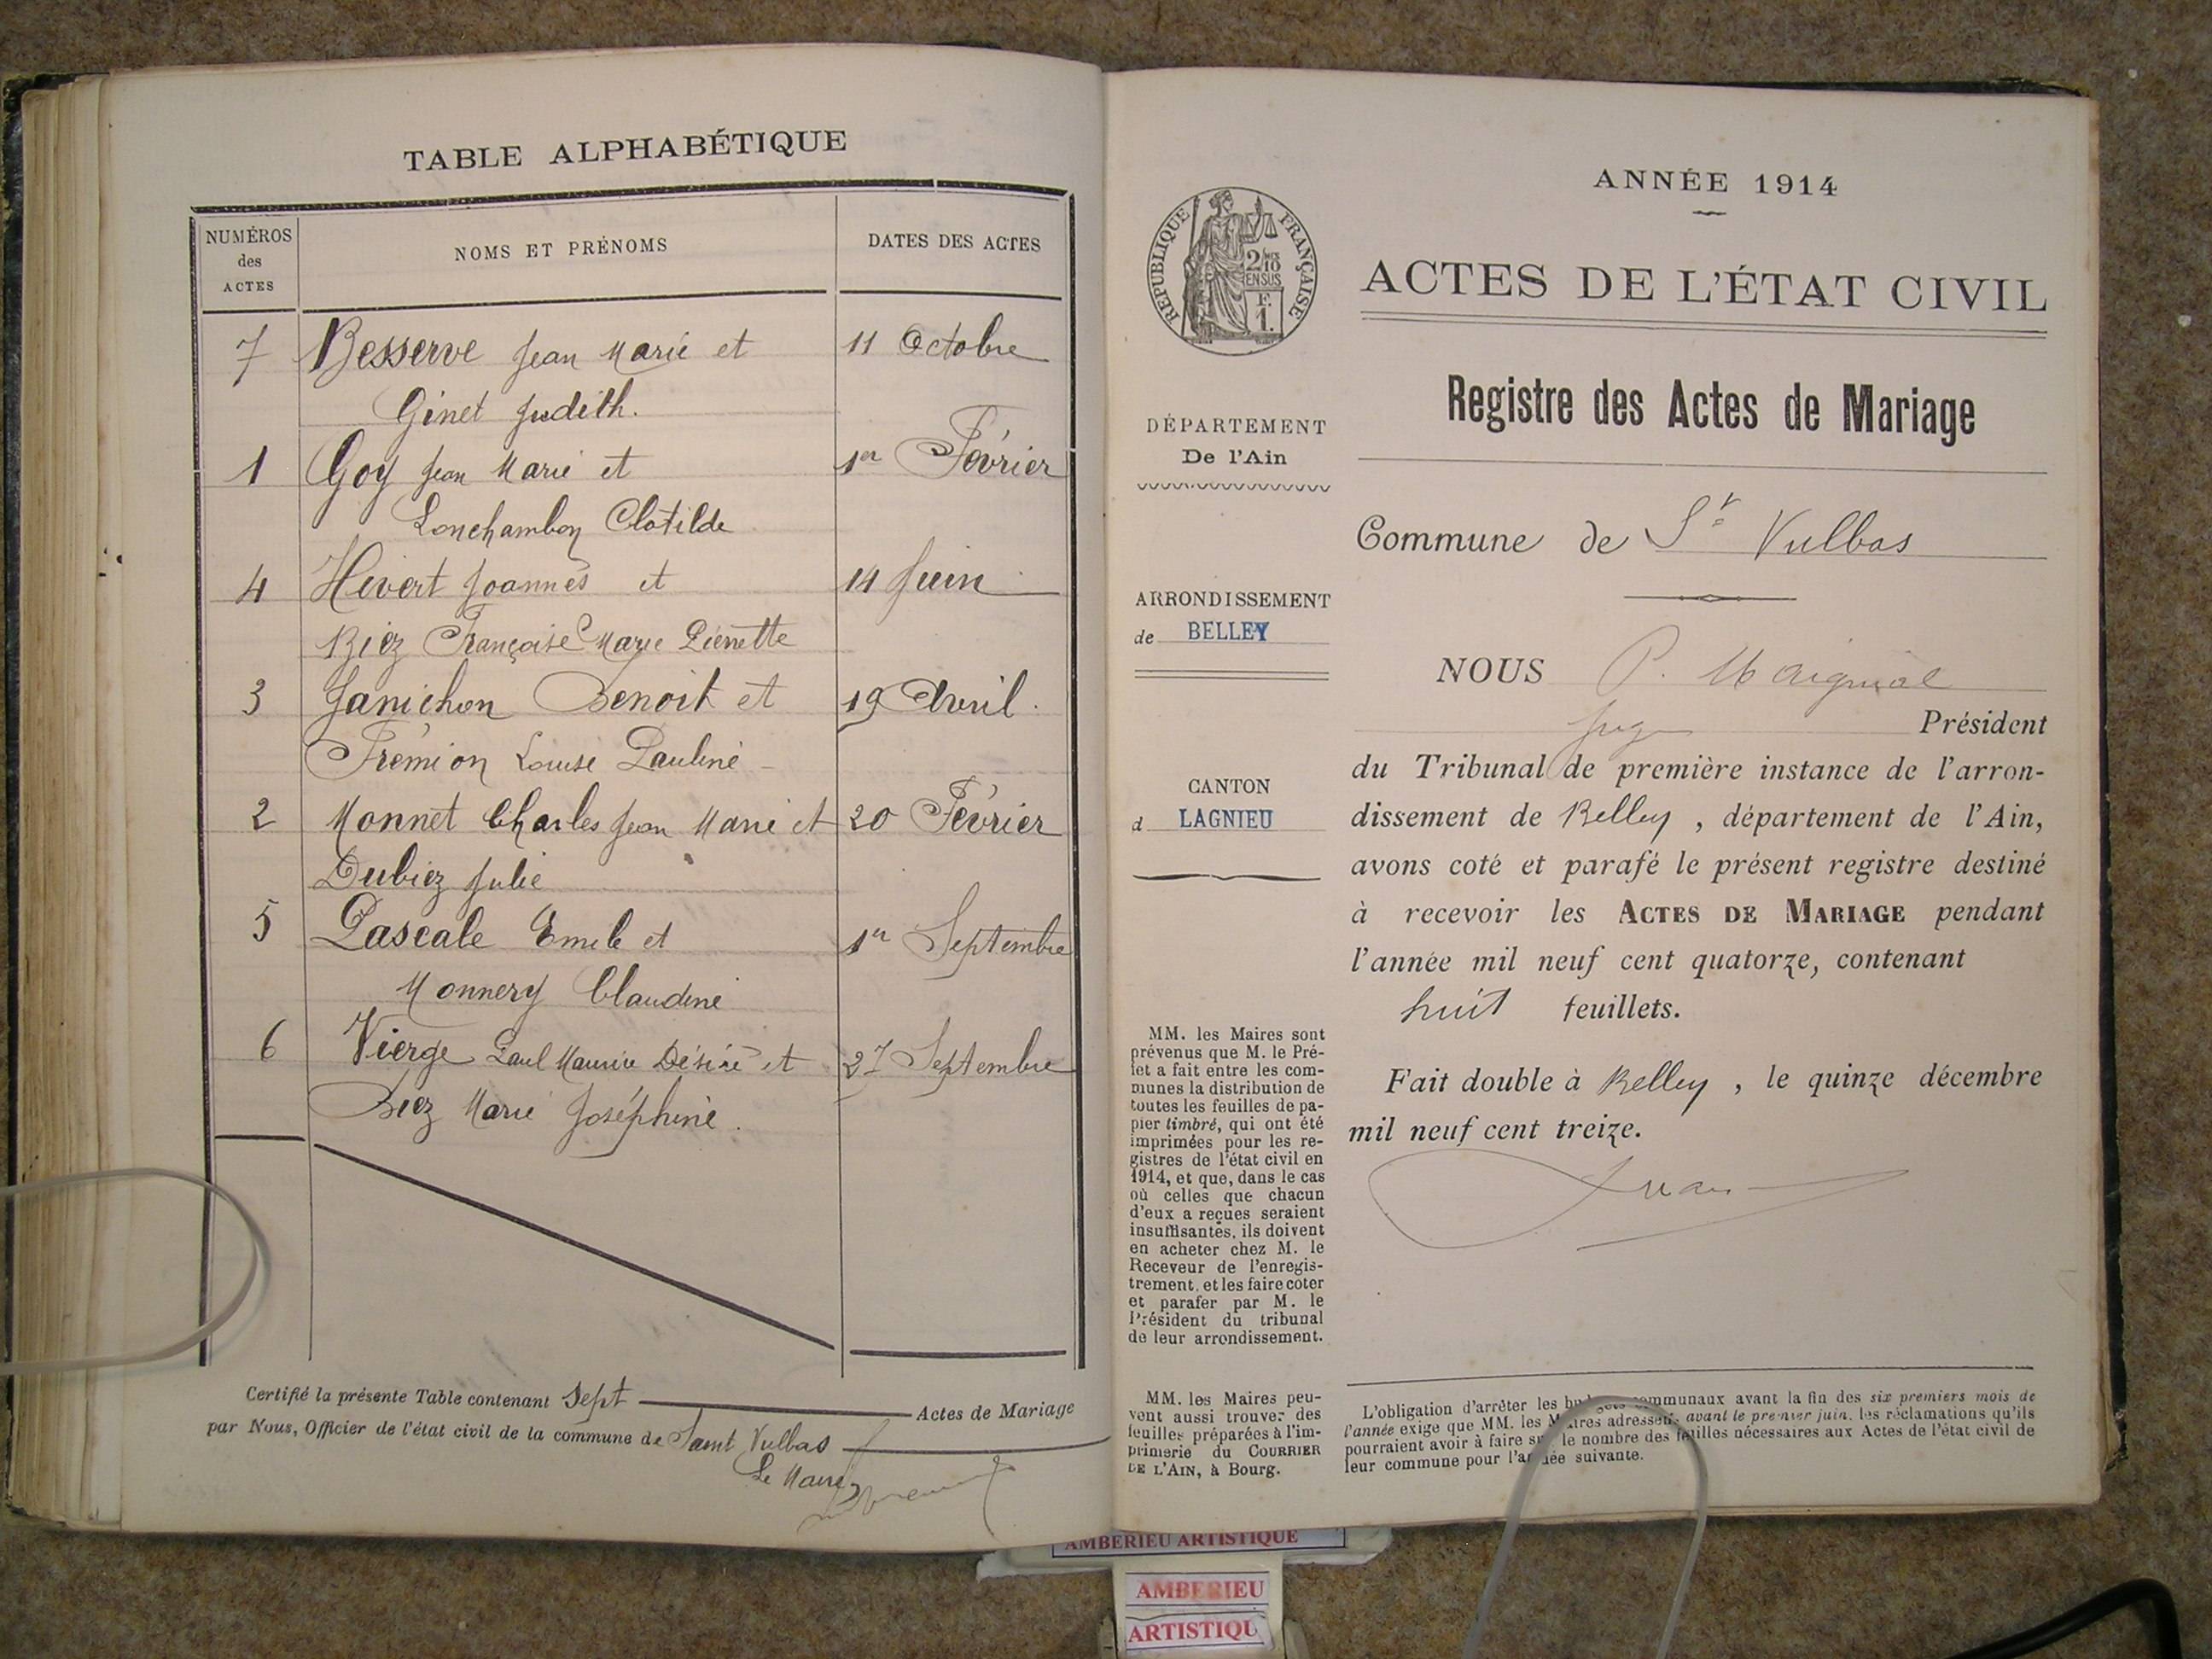 TABLE ALPHABÉTIQUE
NUMÉROS des ACTES
NOMS ET PRÉNOMS
DATES DES ACTES
7 Besserve Jean Marie et 11 Octobre
Ginet Judith.
1 Goy Jean Marie et 1er Février
Lonchambon Clotilde
4 Hivert Joannès et 14 Juin
Biez Françoise Marie Pierrette
3 Janichon Benoit et 19 Avril.
Frémion Louise Pauline
2 Monnet Charles Jean Marie et 20 Février
Dubiez Julie
5 Pascale Emile et 1er Septembre
Monnery Claudine
6 Vierge Paul Maurice Désiré et 27 Septembre
Biez Marie Joséphine.
Certifié la présente Table contenant Sept Actes de Mariage
par Nous, Officier de l'état civil de la commune de Saint Vulbas
Le Maire
ANNÉE 1914
RÉPUBLIQUE FRANÇAISE
2/10 EN SUS
F. 1.
ACTES DE L'ÉTAT CIVIL
Registre des Actes de Mariage
DÉPARTEMENT
De l'Ain
Commune de St Vulbas
ARRONDISSEMENT
de BELLEY
NOUS P.
Juge Président
du Tribunal de première instance de l'arron-
dissement de Belley, département de l'Ain,
avons coté et parafé le présent registre destiné
à recevoir les ACTES DE MARIAGE pendant
l'année mil neuf cent quatorze, contenant
huit feuillets.
Fait double à Belley, le quinze décembre
mil neuf cent treize.
CANTON
d LAGNIEU
MM. les Maires sont
prévenus que M. le Pré-
fet a fait entre les com-
munes la distribution de
toutes les feuilles de pa-
pier timbré, qui ont été
imprimées pour les re-
gistres de l'état civil en
1914, et que, dans le cas
où celles que chacun
d'eux a reçues seraient
insuffisantes, ils doivent
en acheter chez M. le
Receveur de l'enregis-
trement, et les faire coter
et parafer par M. le
Président du tribunal
de leur arrondissement.
MM. les Maires peu-
vent aussi trouver des
feuilles préparées à l'im-
primerie du COURRIER
DE L'AIN, à Bourg.
L'obligation d'arrêter les budgets communaux avant la fin des six premiers mois de
l'année exige que MM. les Maires adressent, avant le premier juin, les réclamations qu'ils
pourraient avoir à faire sur le nombre des feuilles nécessaires aux Actes de l'état civil de
leur commune pour l'année suivante.
AMBERIEU ARTISTIQUE
AMBERIEU
ARTISTIQU